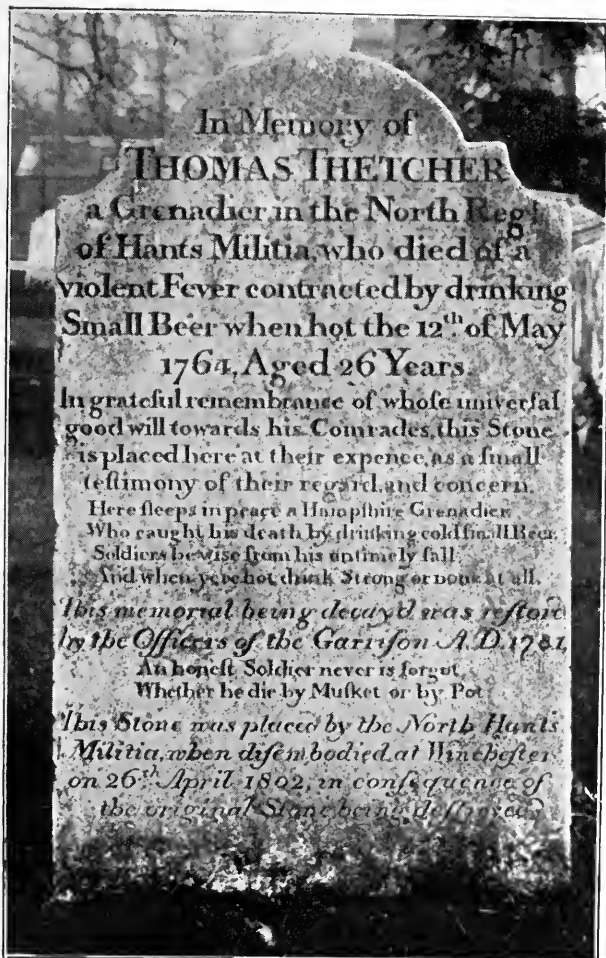 In Memory of
THOMAS THETCHER
a Grenadier in the North Regt.
of Hants Militia, who died of a
violent Fever contracted by drinking
Small Beer when hot the 12th of May
1764, Aged 26 Years
In grateful remembrance of whoſe univerſal
good will towards his Comrades, this Stone
is placed here at their expence, as a ſmall
teſtimony of their regard and concern.
Here ſleeps in peace a Hampſhire Grenadier,
Who caught his death by drinking cold ſmall Beer,
Soldiers be wise from his untimely fall
And when ye're hot drink Strong or none at all.
This memorial being decay'd was reſtor'd
by the Officers of the Garriſon A.D. 1781,
An honeſt Soldier never is forgot
Whether he die by Muſket or by Pot
This Stone was placed by the North Hants
Militia, when diſembodied at Wincheſter
on 26th April 1802, in conſequence of
the original Stone being deſtroyed